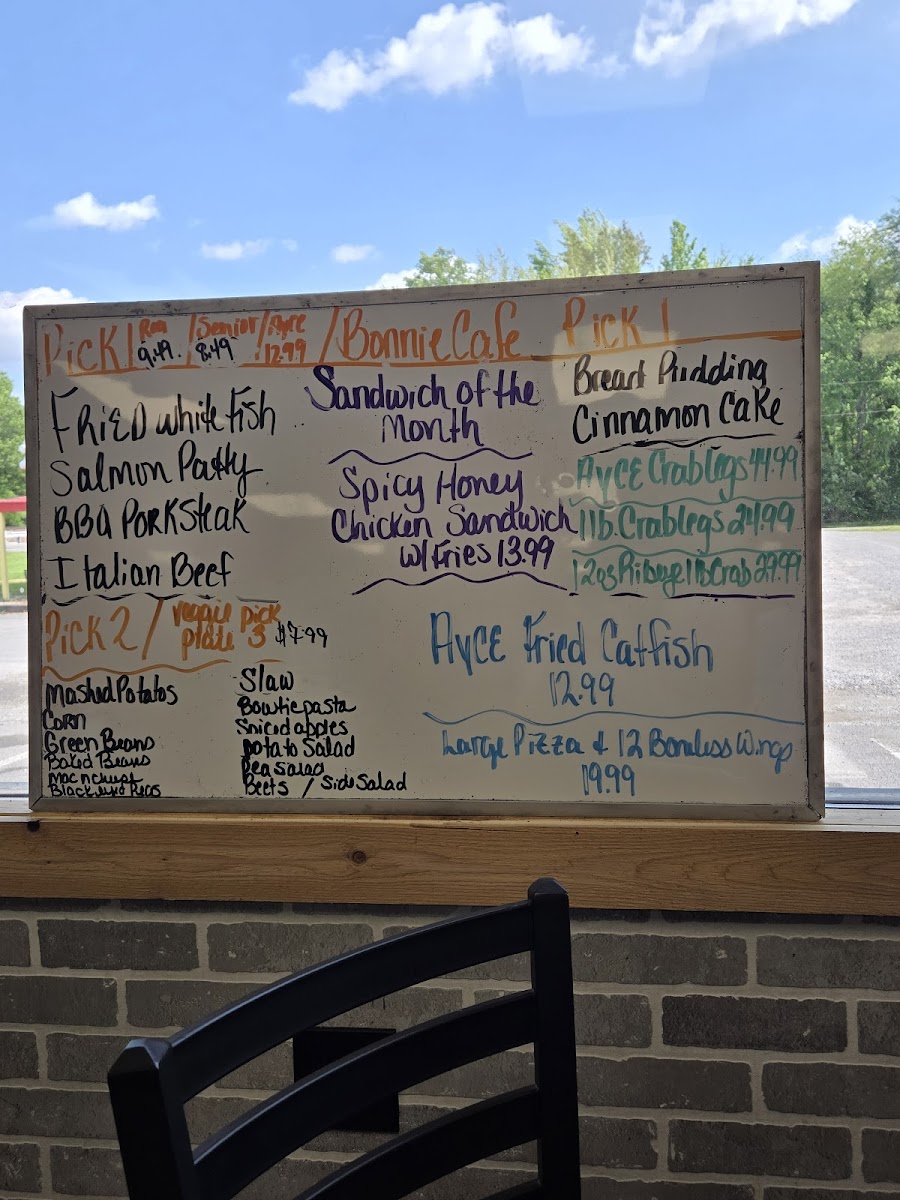 Pick 1 Reg 9.49. / Senior 8.49 / Ayce 12.99 / Bonnie Cafe Pick 1
Fried White Fish
Salmon Patty
BBQ Pork Steak
Italian Beef
Sandwich of the
Month
Spicy Honey
Chicken Sandwich
w/ Fries 13.99
Bread Pudding
Cinnamon Cake
Ayce Crablegs 44.99
1 lb. Crablegs 24.99
12oz Ribeye 1 lb Crab 29.99
Pick 2 / veggie pick
plate 3 $7.99
Mashed Potatos
Corn
Green Beans
Baked Beans
Mac n cheese
Black eyed Peas
Slaw
Bowtie pasta
Spiced apples
Potato Salad
Pea Salad
Beets / Side Salad
Ayce Fried Catfish
12.99
Large Pizza & 12 Boneless Wings
19.99